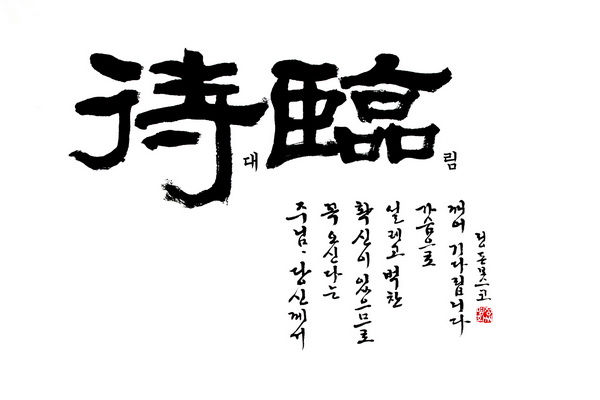 待臨
대 림
주님, 당신께서
꼭 오신다는
확신이 있으므로
설레고 벅찬
가슴으로
깨어 기다립니다